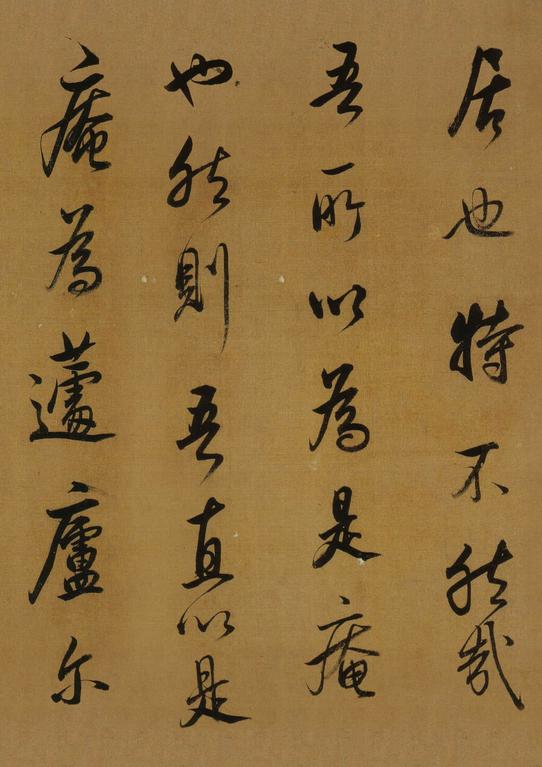 居也特不然哉
吾所以為是庵
也然則吾直以是
庵為蘧廬尔